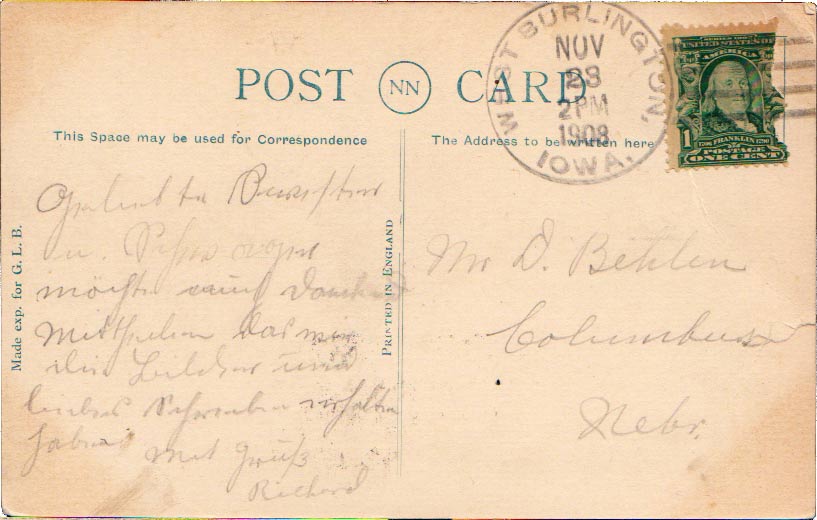 POST NN CARD
This Space may be used for Correspondence
The Address to be written here
WEST BURLINGTON, IOWA.
NOV
23
2 PM
1908
SERIES 1902
UNITED STATES OF
AMERICA
1706 FRANKLIN 1790
1 POSTAGE
ONE CENT
Made exp. for G. L. B.
PRINTED IN ENGLAND
u.
möchte euch
Mittheilen das wir
die Bilder und
liebes Schreiben erhalten
haben
mit Gruß
Richard
Mr D. Behlen
Columbus
Nebr.